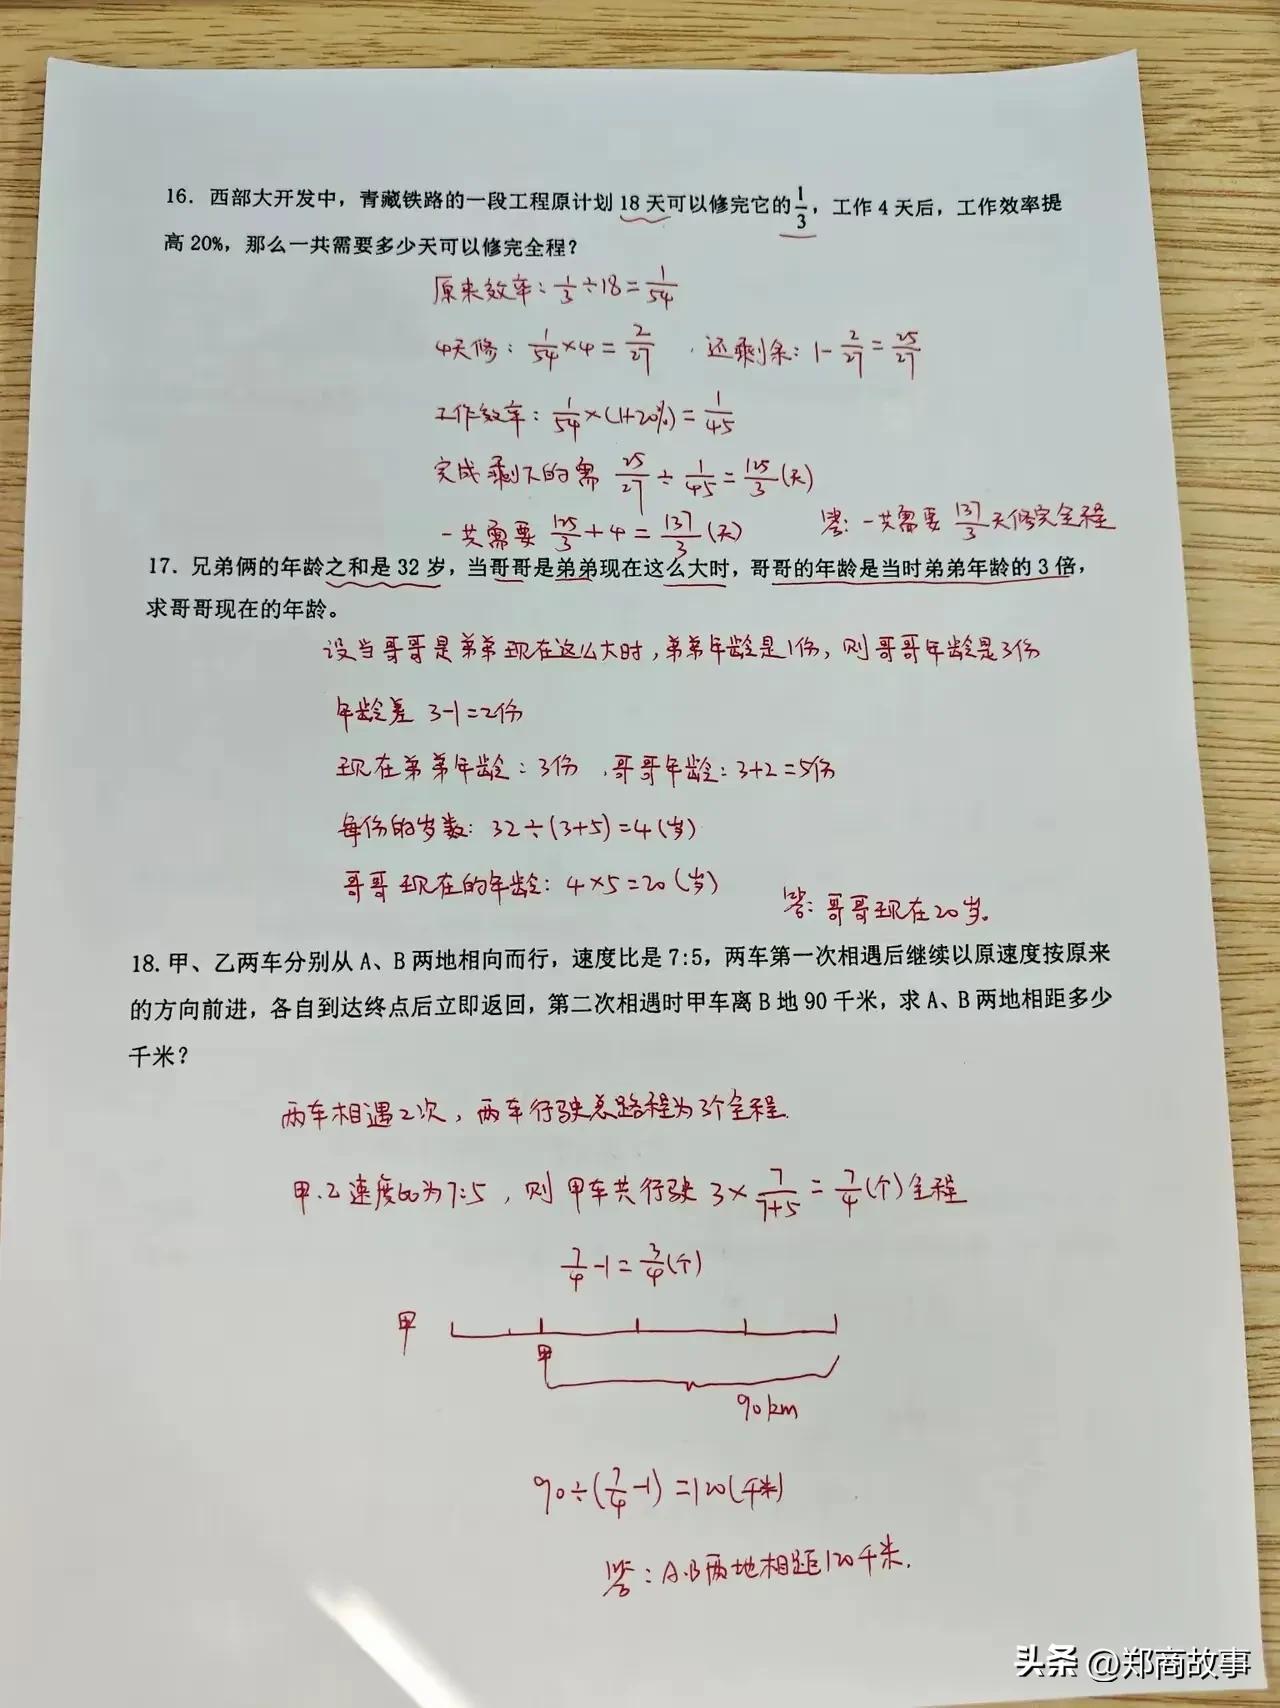 16. 西部大开发中，青藏铁路的一段工程原计划 18 天可以修完它的1/3，工作 4 天后，工作效率提
高 20%，那么一共需要多少天可以修完全程？
原来效率：1/3÷18=1/54
4天修：1/54×4=2/27 ，还剩余：1-2/27=25/27
工作效率：1/54×(1+20%)=1/45
完成剩下的需 25/27÷1/45=125/3(天)
一共需要 125/3+4=137/3(天)
答：一共需要 137/3天修完全程
17. 兄弟俩的年龄之和是 32 岁，当哥哥是弟弟现在这么大时，哥哥的年龄是当时弟弟年龄的 3 倍，
求哥哥现在的年龄。
设当哥哥是弟弟现在这么大时，弟弟年龄是1份，则哥哥年龄是3份
年龄差 3-1=2份
现在弟弟年龄：3份，哥哥年龄：3+2=5份
每份的岁数：32÷(3+5)=4(岁)
哥哥现在的年龄：4×5=20(岁)
答：哥哥现在20岁。
18. 甲、乙两车分别从 A、B 两地相向而行，速度比是 7:5，两车第一次相遇后继续以原速度按原来
的方向前进，各自到达终点后立即返回，第二次相遇时甲车离 B 地 90 千米，求 A、B 两地相距多少
千米？
两车相遇2次，两车行驶总路程为3个全程.
甲.乙速度比为7:5，则甲车共行驶 3×7/(7+5)=7/4(个)全程
7/4-1=3/4(个)
甲
甲
90km
90÷(7/4-1)=120(千米)
答：A.B两地相距120千米.
头条 @郑商故事